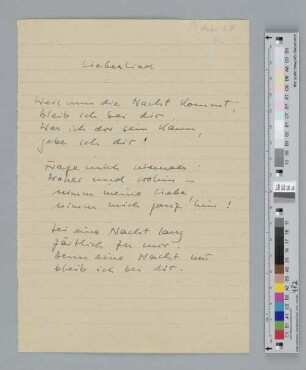 Liebeslied
Weil nun die Nacht kommt,
bleib ich bei dir.
Was ich dir sein kann,
gebe ich dir!
Frage mich niemals
woher und wohin –
nimm meine Liebe,
nimm mich ganz hin!
Sei eine Nacht lang
zärtlich zu mir.
Denn eine Nacht nur
bleib ich bei dir.